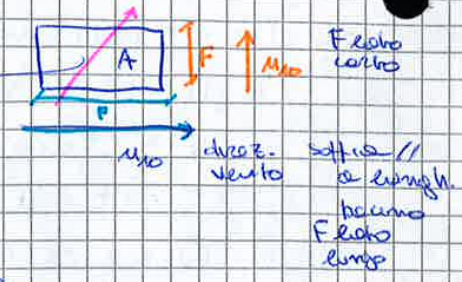 A
F
u10
F lato
corto
P
u10
direz.
vento
soffia //
a lungh.
bacino
F lato
lungo